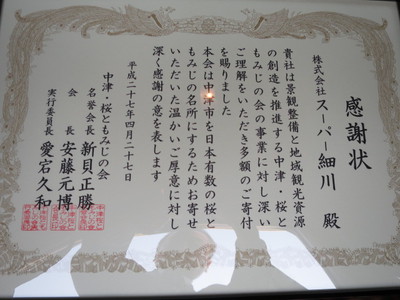 感謝状
株式会社スーパー細川 殿
貴社は景観整備と地域観光資源
の創造を推進する中津・桜と
もみじの会の事業に対し深い
ご理解をいただき多額のご寄付
を賜りました
本会は中津市を日本有数の桜と
もみじの名所にするためお寄せ
いただいた温かいご厚意に対し
深く感謝の意を表します
平成二十七年四月二十七日
中津・桜ともみじの会
名誉会長 新貝正勝
会長 安藤元博
実行委員長 愛宕久和